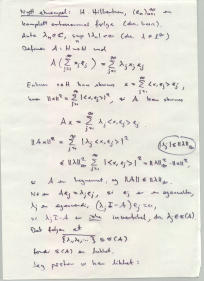 Nytt eksempel: H Hilbertrum, (e_n)_{n=1}^∞ en
komplett ortonormal følge (dvs. basis).
λ_n ∈ ℂ, sup_n |λ_n| < ∞ (dvs. λ ∈ ℓ^∞)
Definer A: H → H ved
A(∑_{j=1}^∞ α_j e_j) = ∑_{j=1}^∞ λ_j α_j e_j
Enhver x ∈ H kan skrives x = ∑_{j=1}^∞ <x, e_j> e_j,
hvor ‖x‖² = ∑_{j=1}^∞ |<x, e_j>|², så A kan skrives
A x = ∑_{j=1}^∞ λ_j <x, e_j> e_j
‖Ax‖² = ∑_{j=1}^∞ |λ_j <x, e_j>|²
|λ_j| ≤ ‖λ‖_∞
≤ ‖λ‖_∞² ∑_{j=1}^∞ |<x, e_j>|² = ‖λ‖_∞² · ‖x‖²
så A er begrenset, og ‖A‖ ≤ ‖λ‖_∞.
Nå er A e_j = λ_j e_j, så e_j er en egenvektor,
λ_j en egenverdi, (λ_j I - A) e_j = 0,
så λ_j I - A er ikke invertibel, dvs λ_j ∈ σ(A)
Det følger at
{λ_1, λ_2, ...} ⊆ σ(A)
fordi σ(A) er lukket.
Jeg påstår vi har likhet: